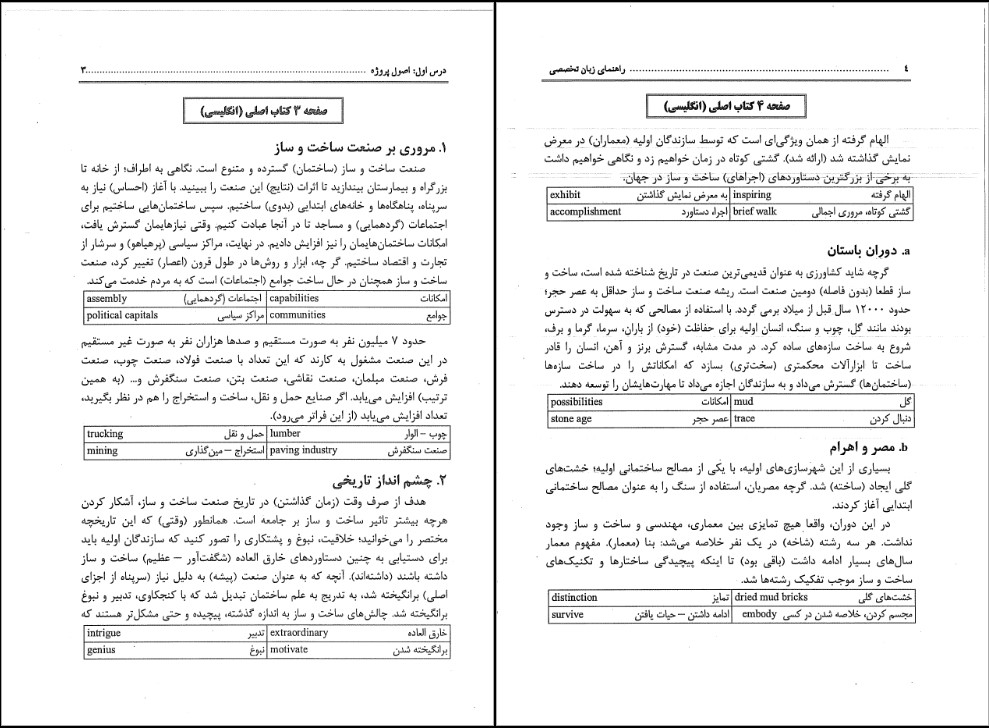 درس اول: اصول پروژه ..........................................................................................۳
صفحه ۳ کتاب اصلی (انگلیسی)
۱. مروری بر صنعت ساخت و ساز
صنعت ساخت و ساز (ساختمان) گسترده و متنوع است. نگاهی به اطراف؛ از خانه تا
بزرگراه و بیمارستان بیندازید تا اثرات (نتایج) این صنعت را ببینید. با آغاز (احساس) نیاز به
سرپناه، پناهگاه‌ها و خانه‌های ابتدایی (بدوی) ساختیم. سپس ساختمان‌هایی ساختیم برای
اجتماعات (گردهمایی) و مساجد تا در آنجا عبادت کنیم. وقتی نیازهایمان گسترش یافت،
امکانات ساختمان‌هایمان را نیز افزایش دادیم. در نهایت، مراکز سیاسی (پرهیاهو) و سرشار از
تجارت و اقتصاد ساختیم. گر چه، ابزار و روش‌ها در طول قرون (اعصار) تغییر کرد، صنعت
ساخت و ساز همچنان در حال ساخت جوامع (اجتماعات) است که به مردم خدمت می‌کند.
امکانات capabilities اجتماعات (گردهمایی) assembly
جوامع communities مراکز سیاسی political capitals
حدود ۷ میلیون نفر به صورت مستقیم و صدها هزاران نفر به صورت غیر مستقیم
در این صنعت مشغول به کارند که این تعداد با صنعت فولاد، صنعت چوب، صنعت
فرش، صنعت مبلمان، صنعت نقاشی، صنعت بتن، صنعت سنگفرش و... (به همین
ترتیب) افزایش می‌یابد. اگر صنایع حمل و نقل، ساخت و استخراج را هم در نظر بگیرید،
تعداد افزایش می‌یابد (از این فراتر می‌رود).
چوب – الوار lumber حمل و نقل trucking
صنعت سنگفرش paving industry استخراج – مین‌گذاری mining
۲. چشم انداز تاریخی
هدف از صرف وقت (زمان گذاشتن) در تاریخ صنعت ساخت و ساز، آشکار کردن
هرچه بیشتر تاثیر ساخت و ساز بر جامعه است. همانطور (وقتی) که این تاریخچه
مختصر را می‌خوانید؛ خلاقیت، نبوغ و پشتکاری را تصور کنید که سازندگان اولیه باید
برای دستیابی به چنین دستاوردهای خارق العاده (شگفت‌آور – عظیم) ساخت و ساز
داشته باشند (داشته‌اند). آنچه که به عنوان صنعت (پیشه) به دلیل نیاز (سرپناه از اجزای
اصلی) برانگیخته شد، به تدریج به علم ساختمان تبدیل شد که با کنجکاوی، تدبیر و نبوغ
برانگیخته شد. چالش‌های ساخت و ساز به اندازه گذشته، پیچیده و حتی مشکل‌تر هستند که
خارق العاده extraordinary تدبیر intrigue
برانگیخته شدن motivate نبوغ genius
۴ .......................................................................... راهنمای زبان تخصصی
صفحه ۴ کتاب اصلی (انگلیسی)
الهام گرفته از همان ویژگی‌ای است که توسط سازندگان اولیه (معماران) در معرض
نمایش گذاشته شد (ارائه شد). گشتی کوتاه در زمان خواهیم زد و نگاهی خواهیم داشت
به برخی از بزرگترین دستاوردهای (اجراهای) ساخت و ساز در جهان.
الهام گرفته inspiring به معرض نمایش گذاشتن exhibit
گشتی کوتاه، مروری اجمالی brief walk اجرا، دستاورد accomplishment
a. دوران باستان
گرچه شاید کشاورزی به عنوان قدیمی‌ترین صنعت در تاریخ شناخته شده است، ساخت و
ساز قطعا (بدون فاصله) دومین صنعت است. ریشه صنعت ساخت و ساز حداقل به عصر حجر؛
حدود ۱۲۰۰۰ سال قبل از میلاد برمی گردد. با استفاده از مصالحی که به سهولت در دسترس
بودند مانند گل، چوب و سنگ، انسان اولیه برای حفاظت (خود) از باران، سرما، گرما و برف،
شروع به ساخت سازه‌های ساده کرد. در مدت مشابه، گسترش برنز و آهن، انسان را قادر
ساخت تا ابزارآلات محکمتری (سخت‌تری) بسازد که امکاناتش را در ساخت سازه‌ها
(ساختمان‌ها) گسترش می‌داد و به سازندگان اجازه می‌داد تا مهارت‌هایشان را توسعه دهند.
گل mud امکانات possibilities
دنبال کردن trace عصر حجر stone age
b. مصر و اهرام
بسیاری از این شهرسازی‌های اولیه، با یکی از مصالح ساختمانی اولیه؛ خشت‌های
گلی ایجاد (ساخته) شد. گرچه مصریان، استفاده از سنگ را به عنوان مصالح ساختمانی
ابتدایی آغاز کردند.
در این دوران، واقعا هیچ تمایزی بین معماری، مهندسی و ساخت و ساز وجود
نداشت. هر سه رشته (شاخه) در یک نفر خلاصه می‌شد: بنا (معمار). مفهوم معمار
سال‌های بسیار ادامه داشت (باقی بود) تا اینکه پیچیدگی ساختارها و تکنیک‌های
ساخت و ساز موجب تفکیک رشته‌ها شد.
خشت‌های گلی dried mud bricks تمایز distinction
مجسم کردن، خلاصه شدن در کسی embody ادامه داشتن – حیات یافتن survive